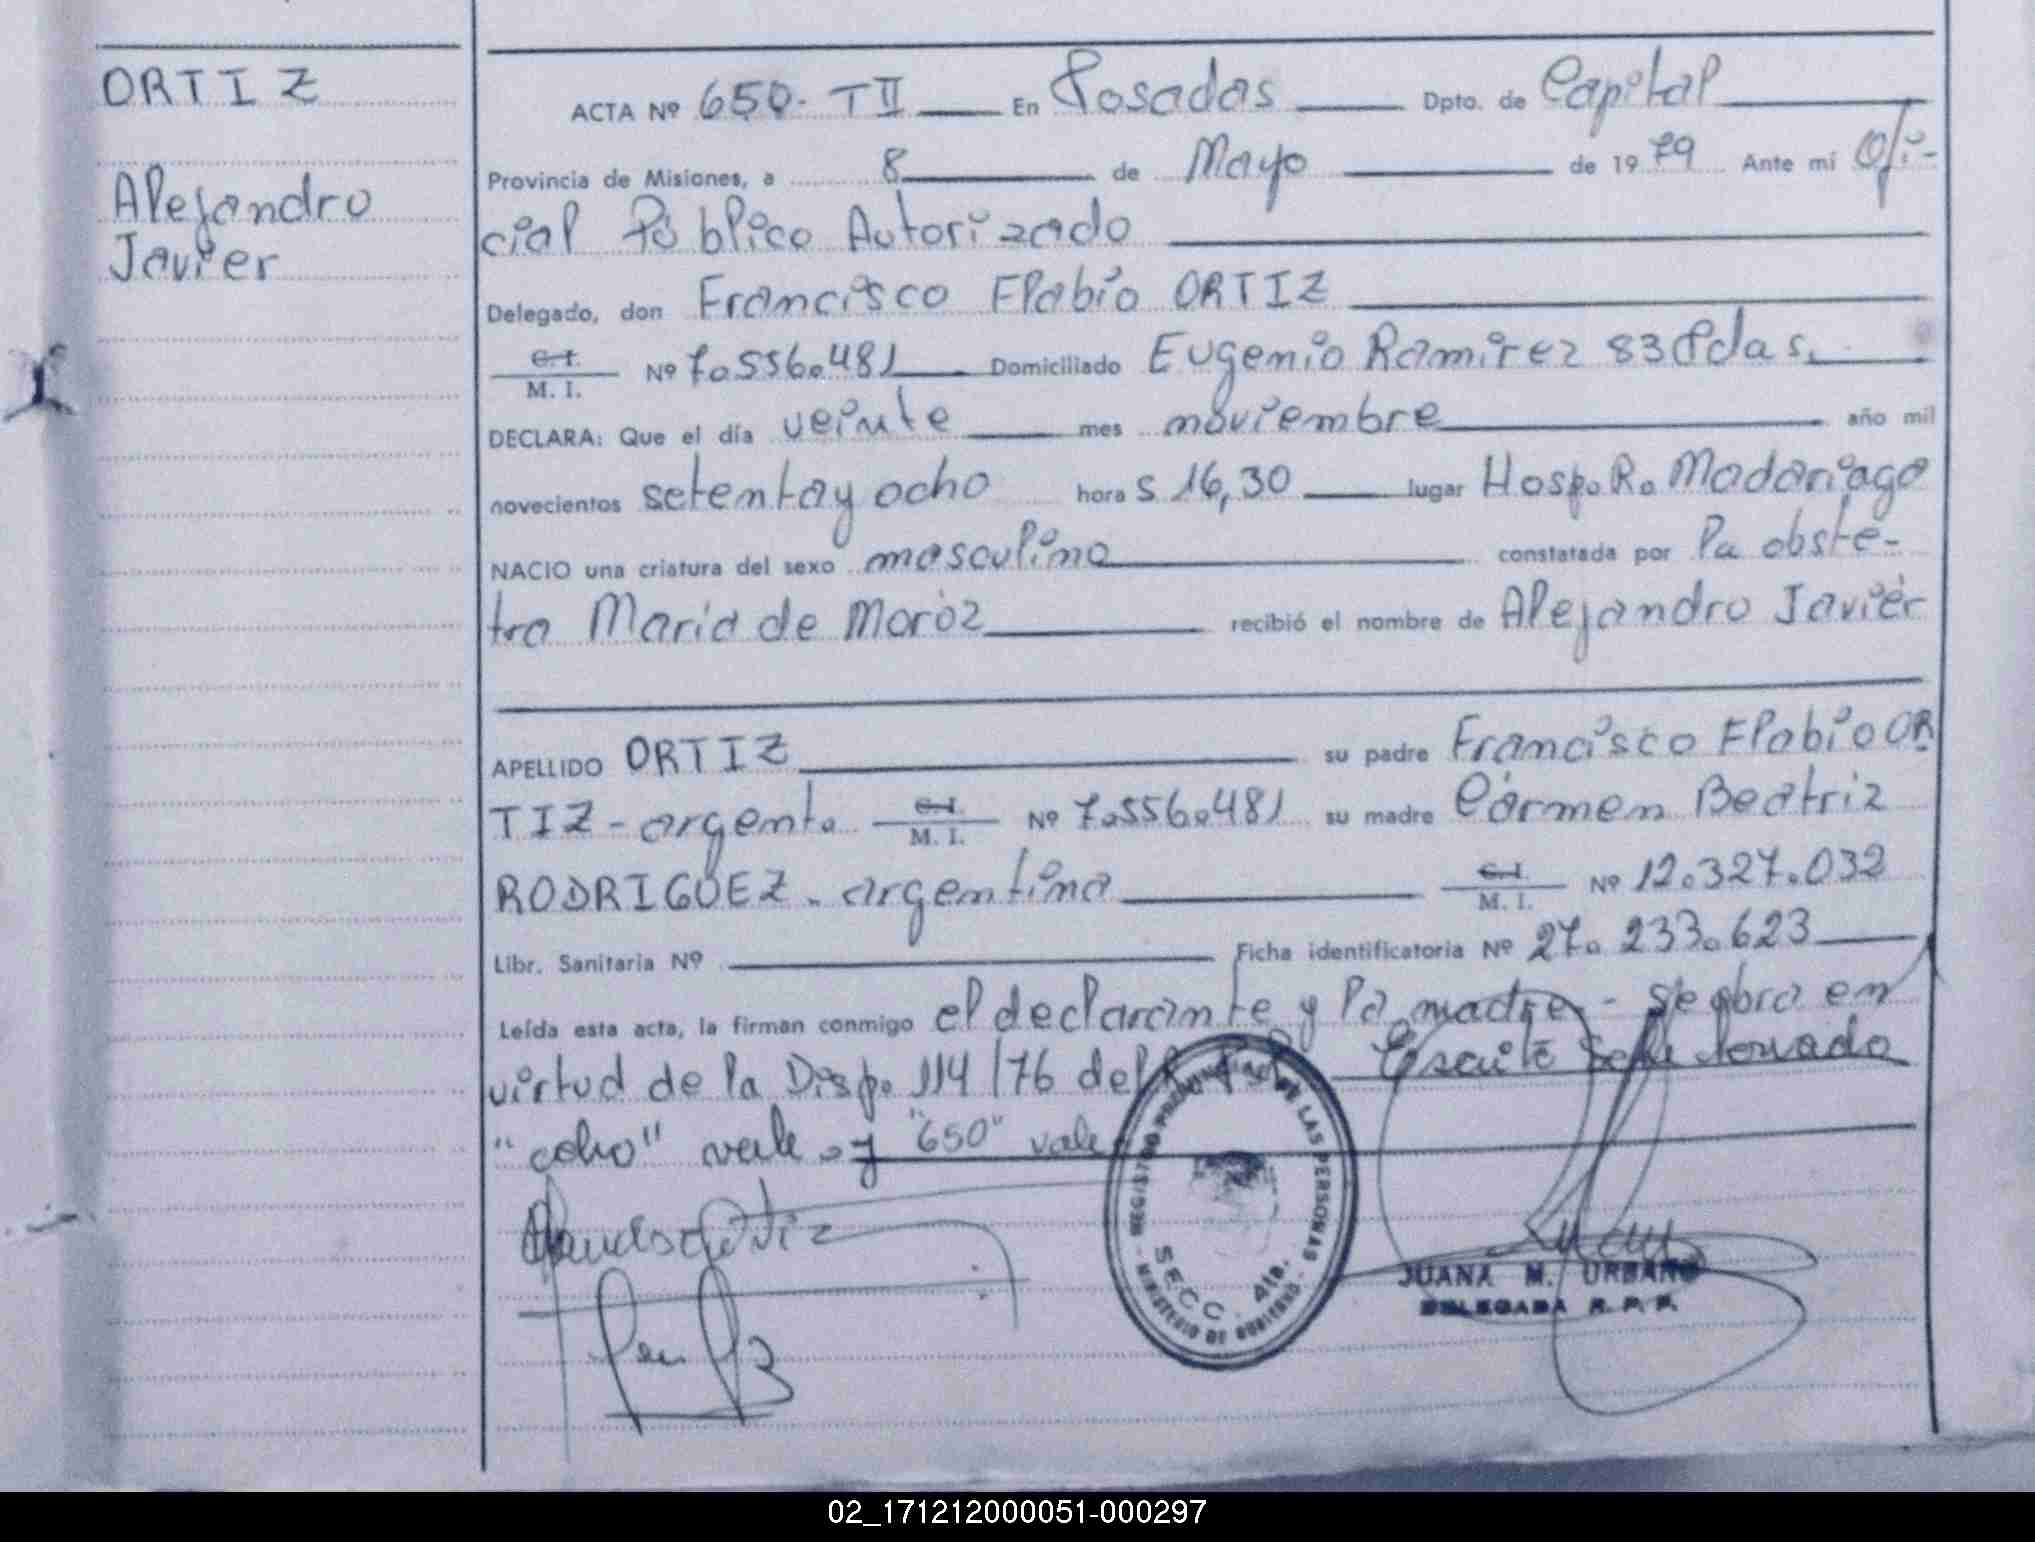 ORTIZ
Alejandro
Javier
ACTA Nº 650- TII En Posadas Dpto. de Capital
Provincia de Misiones, a 8 de Mayo de 1979 Ante mí Ofi-
cial Público Autorizado
Delegado, don Francisco Flabio ORTIZ
C.I.
M. I. Nº 7.556.481 Domiciliado Eugenio Ramirez 83 Pdas.
DECLARA: Que el día veinte mes noviembre año mil
novecientos setenta y ocho hora s 16,30 lugar Hosp. R. Madariaga
NACIO una criatura del sexo masculino constatada por la obste-
tra Maria de Moroz recibió el nombre de Alejandro Javier
APELLIDO ORTIZ su padre Francisco Flabio OR
TIZ - argent. C.I. M. I. Nº 7.556.481 su madre Cármen Beatriz
RODRIGUEZ - argentina C.I. M. I. Nº 12.327.032
Libr. Sanitaria Nº Ficha identificatoria Nº 27.233.623
Leída esta acta, la firman conmigo el declarante y la madre - Se obra en
virtud de la Disp. 114/76 del
"ocho" vale y "650" vale
REGISTRO PROVINCIAL DE LAS PERSONAS
SECC. 4ta.
MINISTERIO DE GOBIERNO
JUANA M. URBANO
DELEGADA R. P. P.
02_171212000051-000297